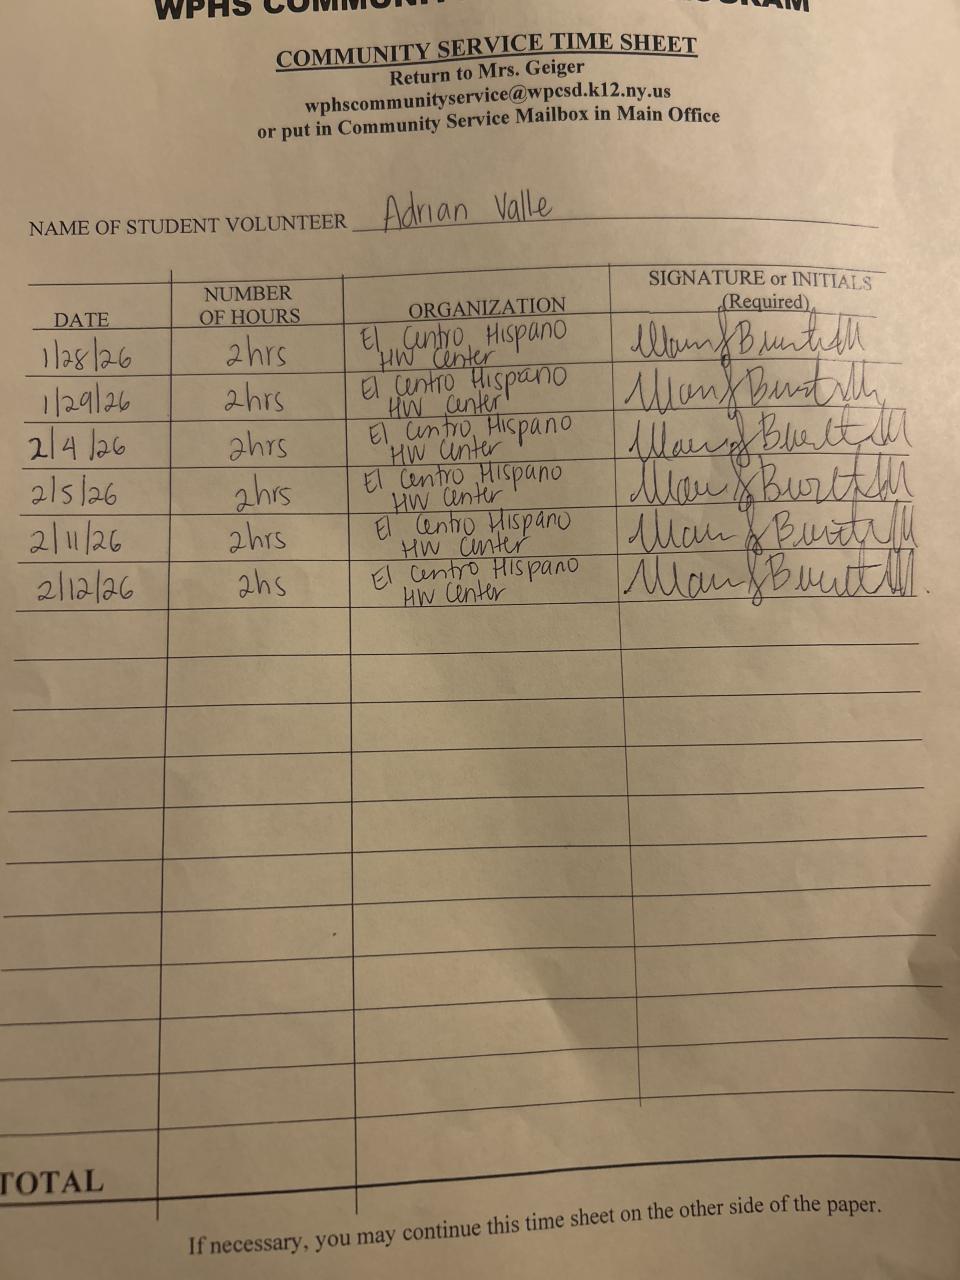 WPHS
COMMUNITY SERVICE TIME SHEET
Return to Mrs. Geiger
wphscommunityservice@wpcsd.k12.ny.us
or put in Community Service Mailbox in Main Office
NAME OF STUDENT VOLUNTEER Adrian Valle
DATE NUMBER OF HOURS ORGANIZATION SIGNATURE or INITIALS (Required)
1/28/26 2hrs El Centro Hispano HW Center
1/29/26 2hrs El Centro Hispano HW Center
2/4/26 2hrs El Centro Hispano HW Center
2/5/26 2hrs El Centro Hispano HW Center
2/11/26 2hrs El Centro Hispano HW Center
2/12/26 2hs El Centro Hispano HW Center
TOTAL
If necessary, you may continue this time sheet on the other side of the paper.